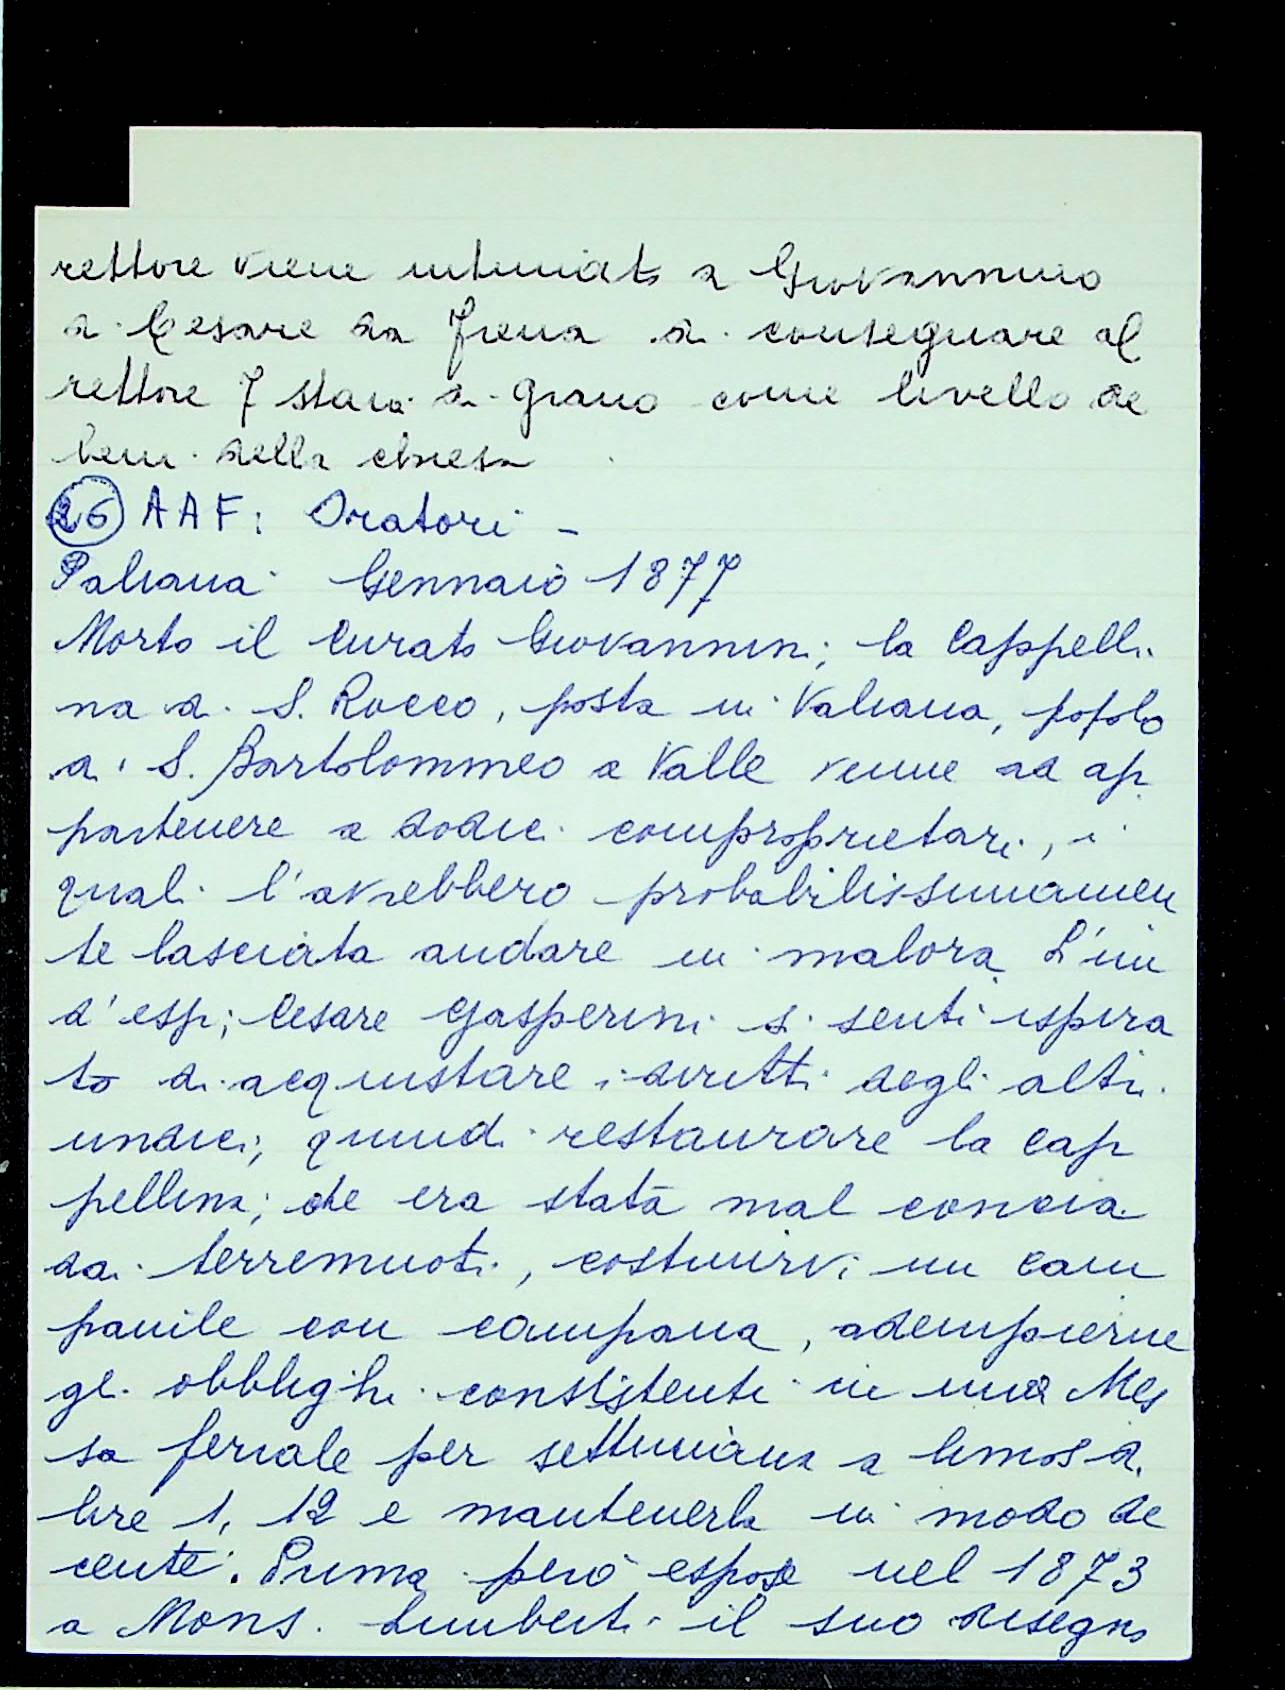 rettore viene intimato a Giovannino
di Cesare da Jena di consegnare al
rettore 7 staia di grano come livello de
beni della chiesa
26 AAF: Oratori -
Paliana Gennaio 1877
Morto il Curato Giovannini, la Cappelli
na di S. Rocco, posta in Valiana, popolo
di S. Bartolommeo a Valle venne ad ap
partenere a dodici comproprietari, i
quali l'avrebbero probabilissimamen
te lasciata andare in malora. L'in
d'esp; Cesare Gasperini si sentì ispira
to di acquistare i diritti degli altri
undici; quindi restaurare la cap
pellina; che era stata mal concia
dai terremuoti, costruirvi un cam
panile con campana, adempierne
gl. obblighi consistenti in una Mes
sa feriale per settimana a limos di
lire 1, 12 e mantenerla in modo de
cente. Prima però espose nel 1873
a Mons. Limberti il suo disegno